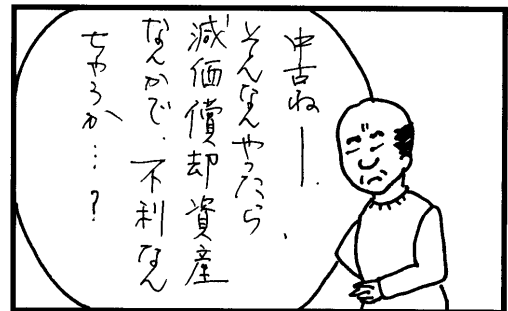 中古ねー.
そんなんやったら、
減価償却資産
なんかで、不利なん
ちゃうか…?